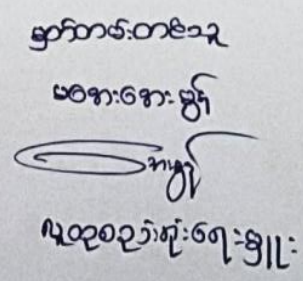 မှတ်တမ်းတင်သူ
မအေးအေးမွန်
လူထုစည်းရုံးရေးမှူး